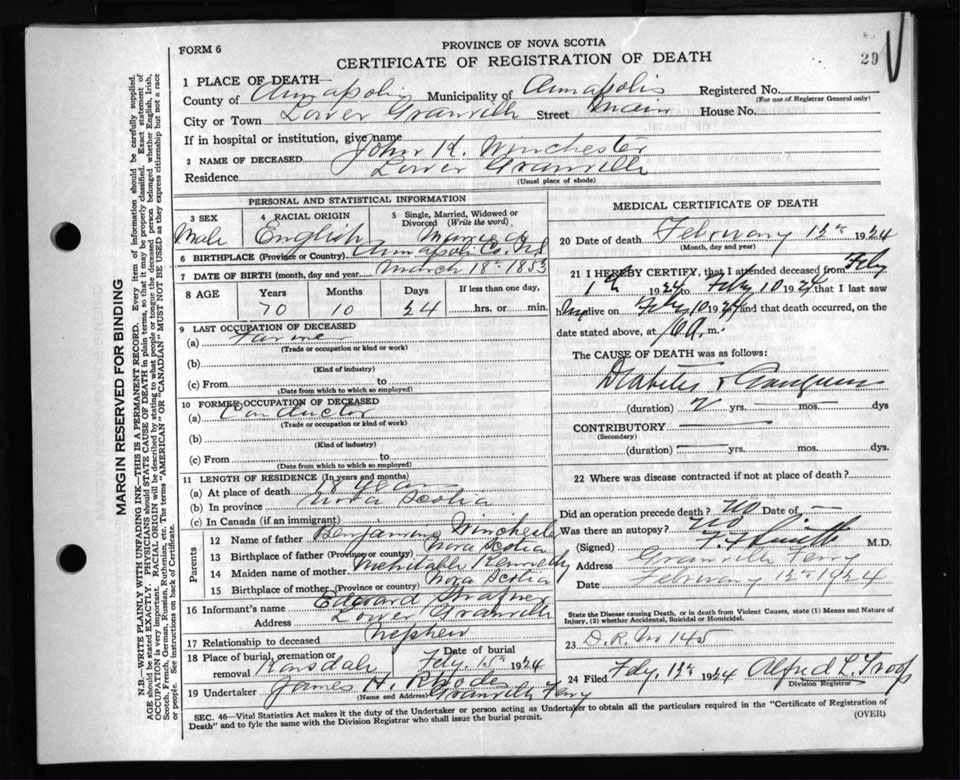 FORM 6
PROVINCE OF NOVA SCOTIA
CERTIFICATE OF REGISTRATION OF DEATH
29
1 PLACE OF DEATH—
County of Annapolis Municipality of Annapolis Registered No.
(For use of Registrar General only)
City or Town Lower Granville Street Main House No.
If in hospital or institution, give name
2 NAME OF DECEASED John K. Winchester
Residence Lower Granville
(Usual place of abode)
PERSONAL AND STATISTICAL INFORMATION
3 SEX Male
4 RACIAL ORIGIN English
5 Single, Married, Widowed or Divorced (Write the word) Married
6 BIRTHPLACE (Province or Country) Annapolis Co. N.S.
7 DATE OF BIRTH (month, day and year) March 18th 1853
8 AGE Years Months Days If less than one day,
70 10 24 hrs. or min.
9 LAST OCCUPATION OF DECEASED
(a) Farmer
(Trade or occupation or kind or work)
(b)
(Kind of industry)
(c) From to
(Date from which to which so employed)
10 FORMER OCCUPATION OF DECEASED
(a) Conductor
(Trade or occupation or kind or work)
(b)
(Kind of industry)
(c) From to
(Date from which to which so employed)
11 LENGTH OF RESIDENCE (In years and months)
(a) At place of death years
(b) In province Nova Scotia
(c) In Canada (if an immigrant)
Parents
12 Name of father Benjamin Winchester
13 Birthplace of father (Province or country) Nova Scotia
14 Maiden name of mother Mehitable Kennedy
15 Birthplace of mother (Province or country) Nova Scotia
16 Informant's name Edward
Address Lower Granville
17 Relationship to deceased Nephew
18 Place of burial, cremation or removal Karsdale
Date of burial Feby. 15th 1924
19 Undertaker James H. Rhodes Granville Ferry
(Name and Address)
MEDICAL CERTIFICATE OF DEATH
20 Date of death February 12th 1924
(Month, day and year)
21 I HEREBY CERTIFY, that I attended deceased from Feby
1st 1924 to Feby 10 1924 that I last saw
him alive on Feby 10 1924 and that death occurred, on the
date stated above, at 6 a. m.
The CAUSE OF DEATH was as follows:
Diabetes & Gangrene
(duration) 2 yrs. mos dys
CONTRIBUTORY
(Secondary)
(duration) yrs. mos. dys
22 Where was disease contracted if not at place of death?
Did an operation precede death? No Date of —
Was there an autopsy? No
(Signed) Smith M.D.
Address Granville Ferry
Date February 12th 1924
State the Disease causing Death, or in death from Violent Causes, state (1) Means and Nature of Injury, (2) whether Accidental, Suicidal or Homicidal.
23 D.R. No 145
24 Filed Feby. 1924 Alfred L. Troop
Division Registrar
SEC. 46—Vital Statistics Act makes it the duty of the Undertaker or person acting as Undertaker to obtain all the particulars required in the "Certificate of Registration of
Death" and to fyle the same with the Division Registrar who shall issue the burial permit.
(OVER)
MARGIN RESERVED FOR BINDING
N.B.—WRITE PLAINLY WITH UNFADING INK—THIS IS A PERMANENT RECORD. Every item of information should be carefully supplied.
AGE should be stated EXACTLY. PHYSICIANS should STATE CAUSE OF DEATH in plain terms, so that it may be properly classified. Exact statement of
OCCUPATION is very important. RACIAL ORIGIN will be described by stating to what people or tongue the deceased person belonged, whether English, Irish,
Scotch, French, German, Russian, Ruthenian, etc. The terms "AMERICAN" OR "CANADIAN" MUST NOT BE USED as they express citizenship but not a race
or people. See instructions on back of Certificate.